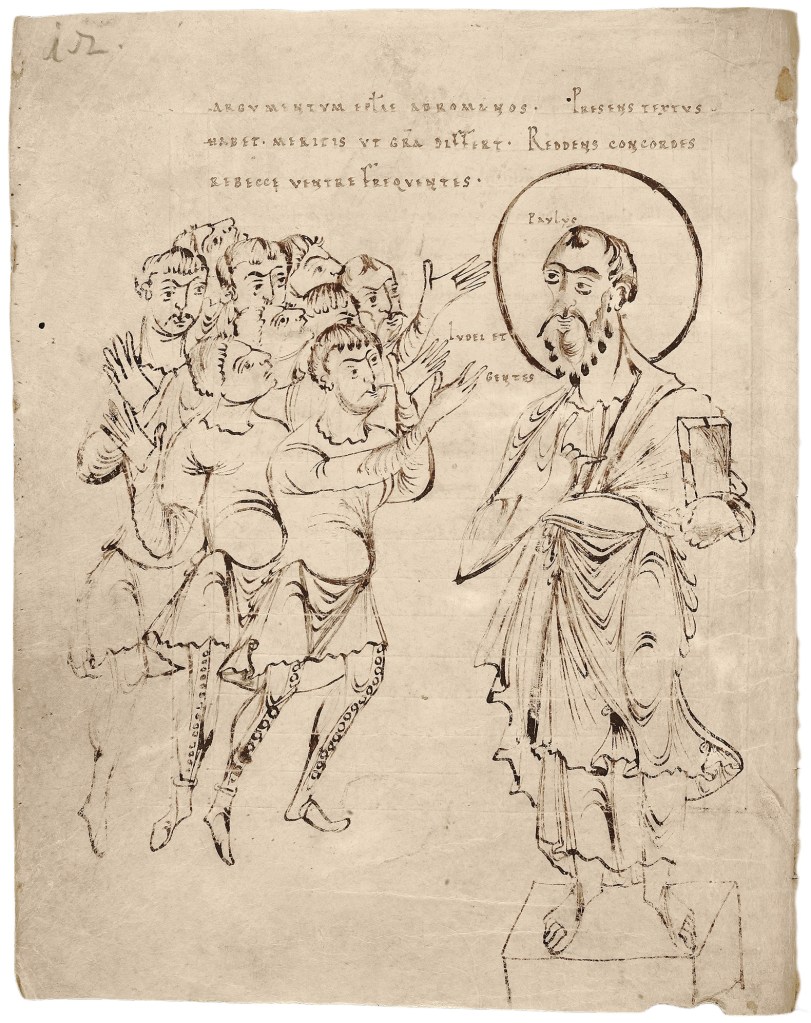 12.
ARGUMENTUM EPLAE ADROMANOS · PRESENS TEXTUS
HABET · MERITIS UT GRA DIFFERT · REDDENS CONCORDES
REBECCĘ VENTRE FREQUENTES ·
PAULUS
IUDEI ET
GENTES